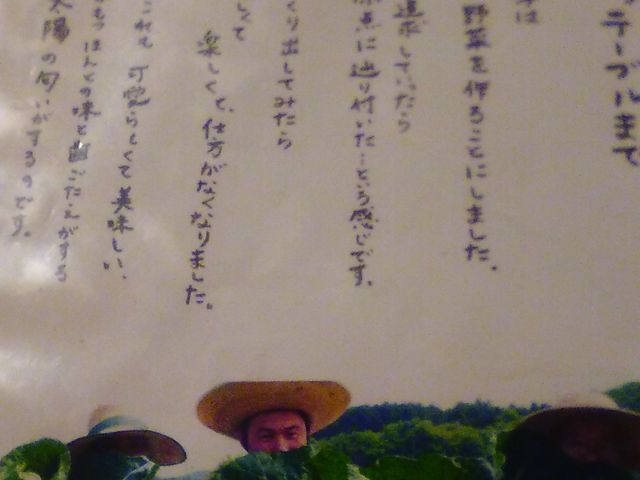 テーブルまで
は
野菜を作ることにしました。
追求していったら
原点に辿り付いた…という感じです。
くり出してみたら
しくて
楽しくて、仕方がなくなりました。
これも可愛らしくて美味しい、
の味と歯ごたえがする
太陽の匂いがするのです。